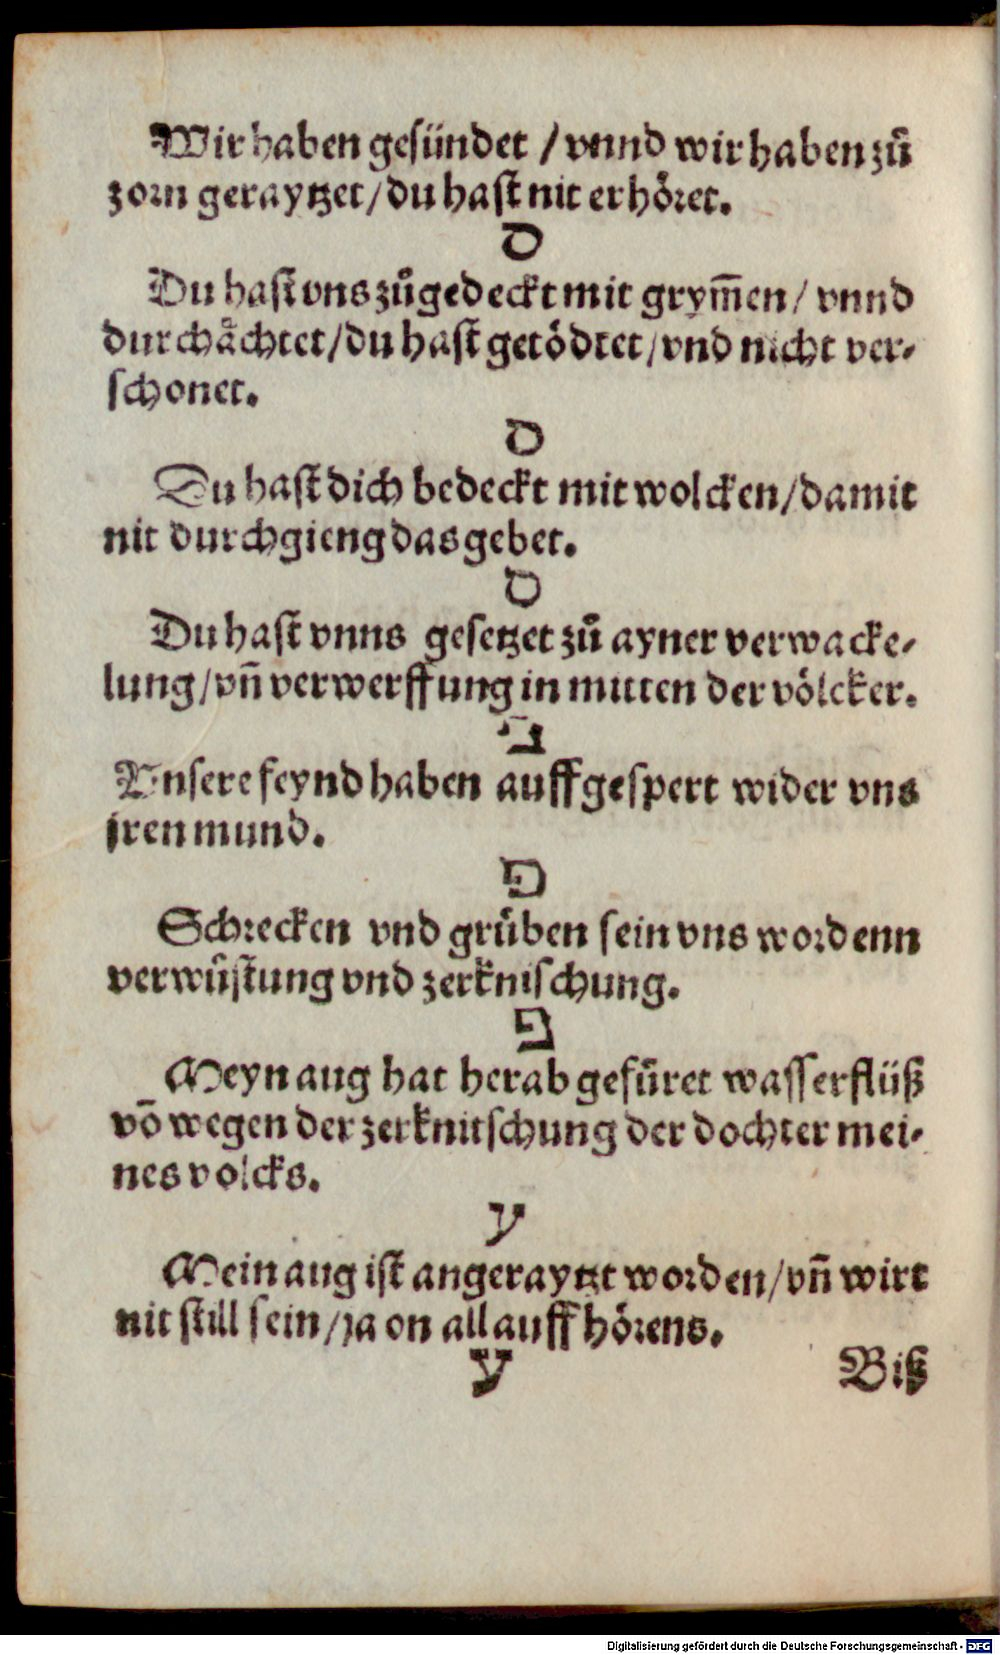 Wir haben gesündet / vnnd wir haben zů
zorn geraytzet / du hast nit erhöret.
ס
Du hast vns zůgedeckt mit grym̄en / vnnd
durchåchtet / du hast getödtet / vnd nicht ver⸗
schonet.
ס
Du hast dich bedeckt mit wolcken / damit
nit durchgieng das gebet.
ס
Du hast vnns gesetzet zů ayner verwacke⸗
lung / vn̄ verwerffung in mitten der völcker.
פ
Vnsere feynd haben auffgespert wider vns
jren mund.
פ
Schrecken vnd grůben sein vns wordenn
verwůstung vnd zerknischung.
פ
Meyn aug hat herab gefůret wasserflüß
vō wegen der zerknitschung der dochter mei⸗
nes volcks.
ע
Mein aug ist angeraytzt worden / vn̄ wirt
nit still sein / ja on all auffhörens.
ע
Biß
Digitalisierung gefördert durch die Deutsche Forschungsgemeinschaft - DFG